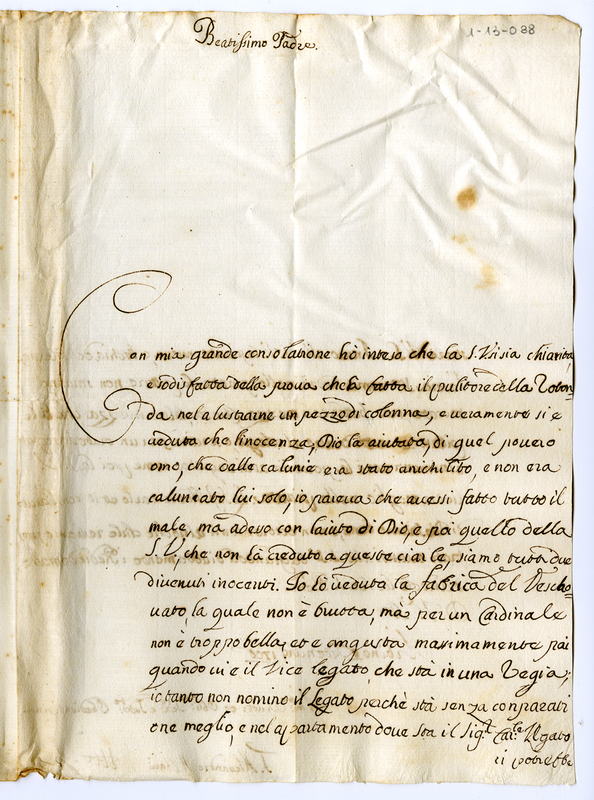 1-13-088
Beatissimo Padre.
Con mia grande consolatione hò inteso che la S. V. si sia chiarita,
e sodisfatta della proua ch'à fatta il pulitore della Roton=
da nel alustrarne un pezzo di colonna, e ueramente si è
ueduta che linocenza, Dio la aiutata, di quel pouero
omo, che dalle calunie era stato anichilito, e non era
caluniato lui solo, io paieua che auessi fatto tutto il
male, ma adeso con laiuto di Dio, e poi quello della
S. V., che non hà creduto a queste ciarle, siamo tutti due
diuenuti inocenti. Io hò ueduta la fabrica del Vescho=
uato, la quale non è brutta, mà per un Cardinale
non è troppo bella, et è angusta masimamente poi
quando ui è il Vice legato, che stà in una Regia;
io tanto non nomino il Legato perchè stà senza conparati
one meglio, e nel apartamento doue sta il Sig.r Car.le Legato
ui potrebbe